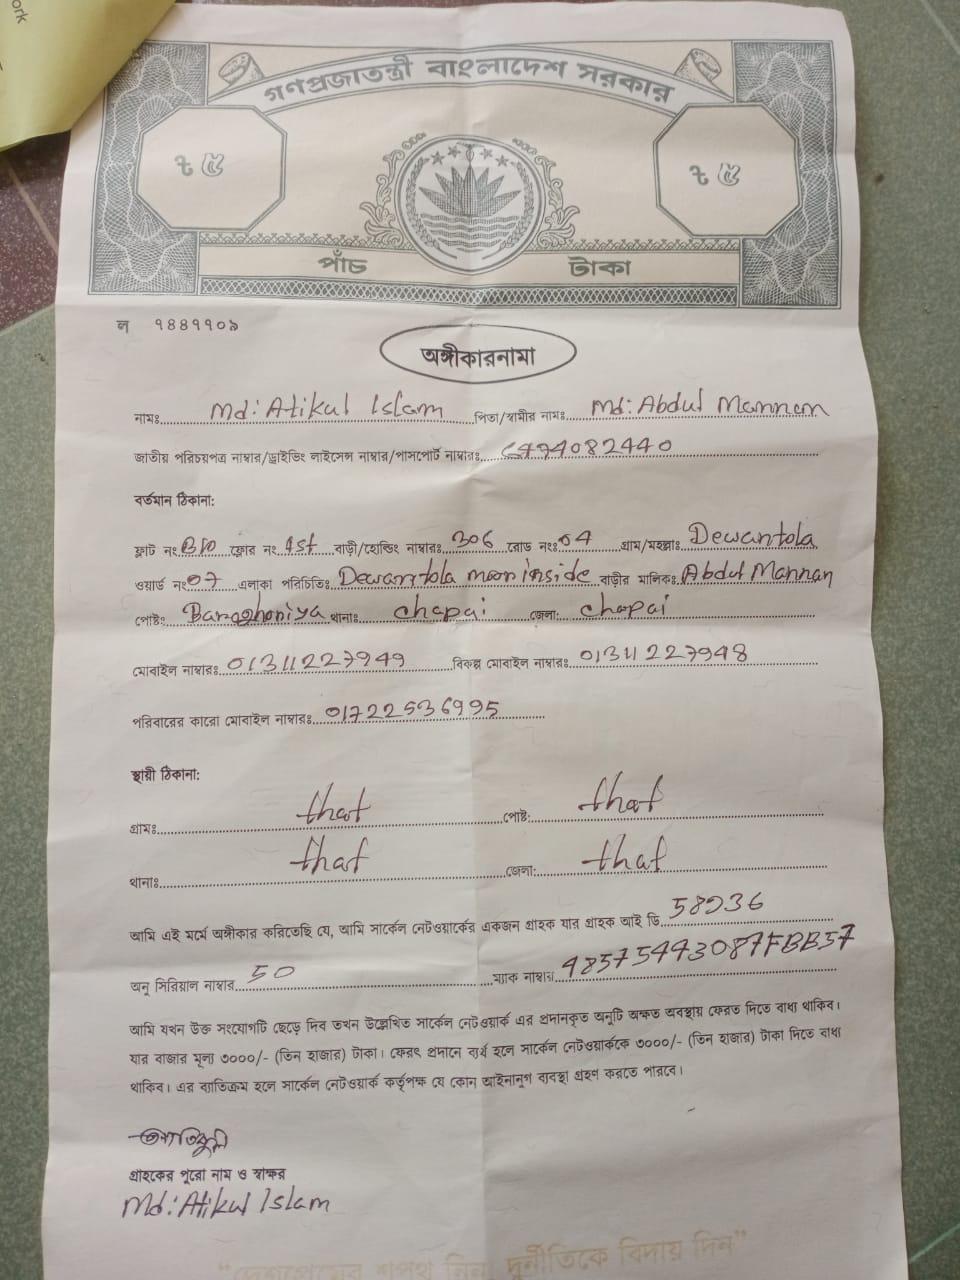 ork
গণপ্রজাতন্ত্রী বাংলাদেশ সরকার
৳ ৫ ৳ ৫
পাঁচ টাকা
ল ৭৪৪৭৭০৯
অঙ্গীকারনামা
নামঃ Md: Atikul Islam পিতা/স্বামীর নামঃ Md: Abdul Mannan
জাতীয় পরিচয়পত্র নাম্বার/ড্রাইভিং লাইসেন্স নাম্বার/পাসপোর্ট নাম্বারঃ
বর্তমান ঠিকানা:
ফ্লাট নং ফ্লোর নং 1st বাড়ী/হোল্ডিং নাম্বারঃ 306 রোড নংঃ 04 গ্রাম/মহল্লাঃ Dewantola
ওয়ার্ড নং 07 এলাকা পরিচিতিঃ Dewantola moon inside বাড়ীর মালিকঃ Abdul Mannan
পোষ্টঃ Baroghoniya থানাঃ chapai জেলা: chapai
মোবাইল নাম্বারঃ 01311227949 বিকল্প মোবাইল নাম্বারঃ 01311227948
পরিবারের কারো মোবাইল নাম্বারঃ 01722536995
স্থায়ী ঠিকানা:
গ্রামঃ that পোষ্ট: that
থানাঃ that জেলা: that
আমি এই মর্মে অঙ্গীকার করিতেছি যে, আমি সার্কেল নেটওয়ার্কের একজন গ্রাহক যার গ্রাহক আই ডি 58936
অনু সিরিয়াল নাম্বার 50 ম্যাক নাম্বার 48575443087FBB57
আমি যখন উক্ত সংযোগটি ছেড়ে দিব তখন উল্লেখিত সার্কেল নেটওয়ার্ক এর প্রদানকৃত অনুটি অক্ষত অবস্থায় ফেরত দিতে বাধ্য থাকিব।
যার বাজার মূল্য ৩০০০/- (তিন হাজার) টাকা। ফেরৎ প্রদানে ব্যর্থ হলে সার্কেল নেটওয়ার্ককে ৩০০০/- (তিন হাজার) টাকা দিতে বাধ্য
থাকিব। এর ব্যতিক্রম হলে সার্কেল নেটওয়ার্ক কর্তৃপক্ষ যে কোন আইনানুগ ব্যবস্থা গ্রহণ করতে পারবে।
গ্রাহকের পুরো নাম ও স্বাক্ষর
Md: Atikul Islam
“দেশপ্রেমের শপথ নিন, দুর্নীতিকে বিদায় দিন”